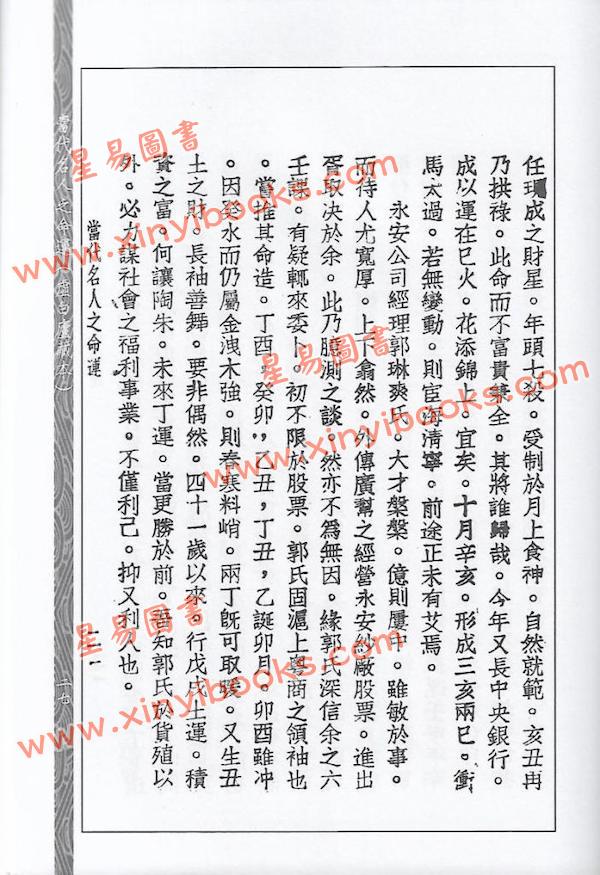 任 成之財星。年頭七殺。受制於月上食神。自然就範。亥丑冉
乃拱祿。此命而不富貴兼全。其將誰歸哉。今年又長中央銀行。
成以運在巳火。花添錦上。宜矣。十月辛亥。形成三亥兩巳。衝
馬太過。若無變動。則宦海清寧。前途正未有艾焉。
永安公司經理郭琳爽氏。大才槃槃。億則屢中。雖敏於事。
而待人尤寬厚。上下翕然。外傳廣幫之經營永安紗廠股票。進出
胥取决於余。此乃臆測之談。然亦不爲無因。緣郭氏深信余之六
壬課。有疑輒來委卜。初不限於股票。郭氏固滬上粵商之領袖也
。嘗推其命造。丁酉，癸卯，乙丑，丁丑，乙誕卯月。卯酉雖冲
。因癸水而仍屬金洩木強。則春寒料峭。兩丁旣可取暖。又生丑
土之財。長袖善舞。要非偶然。四十一歲以來。行戊戌土運。積
資之富。何讓陶朱。未來丁運。當更勝於前。 知郭氏於貨殖以
外。必力謀社會之福利事業。不僅利己。抑又利人也。
當代名人之命運
二一
當代名人之命運
一七
星易圖書
www.xinyibooks.com
星易圖書
www.xinyibooks.com
星易圖書
www.xinyibooks.com